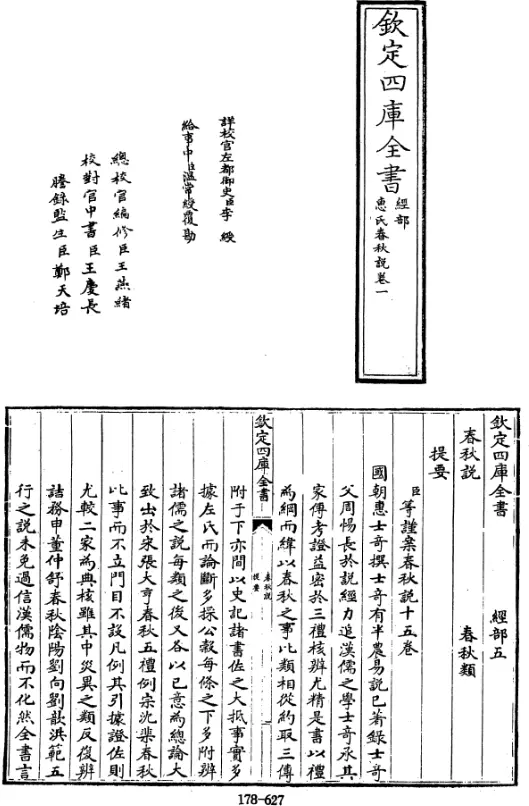 欽定四庫全書
經部
惠氏春秋説卷一
詳校官左都御史臣李綬
給事中臣溫常綬覆勘
總校官編修臣王燕緒
校對官中書臣王慶長
謄錄監生臣鄭天培
欽定四庫全書　經部五
春秋説　春秋類
提要
臣等謹案春秋説十五卷
國朝惠士奇撰士奇有半農易説已著録士奇
父周惕長於説經力追漢儒之學士奇承其
家傳考證益密於三禮核辨尤精是書以禮
為綱而緯以春秋之事比類相從約取三傳
附于下亦間以史記諸書佐之大抵事實多
據左氏而論斷多採公穀每條之下多附辨
諸儒之説每類之後又各以己意為總論大
致出於宋張大亨春秋五禮例宗沈棐春秋
比事而不立門目不設凡例其引據證佐則
尤較二家為典核雖其中災異之類反復辨
詰務申董仲舒春秋陰陽劉向劉歆洪範五
行之説未免過信漢儒物而不化然全書言
欽定四庫全書
春秋説
提要
178-627